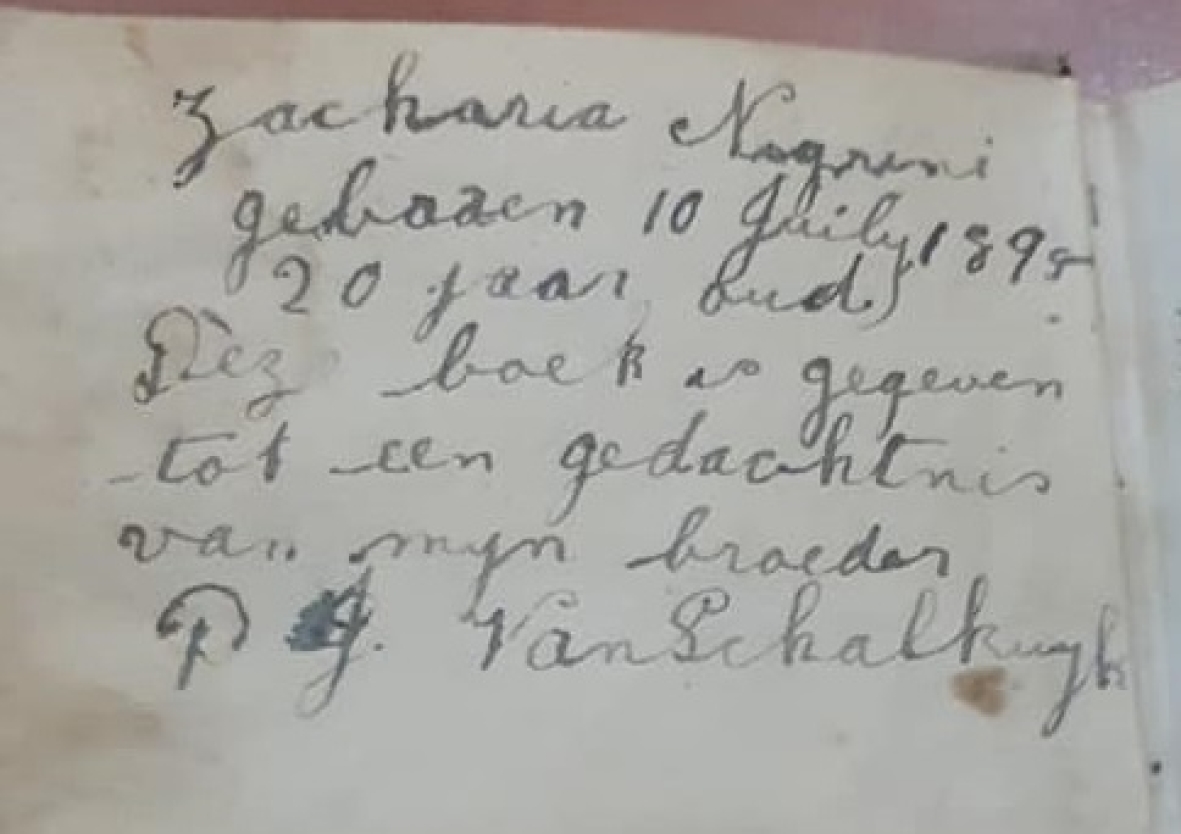 Zacharia Nogrini
geboren 10 Juily 189
20 jaar oud
Deze boek is gegeven
tot een gedachtnis
van myn broeder
P J. Van Schalkwyk